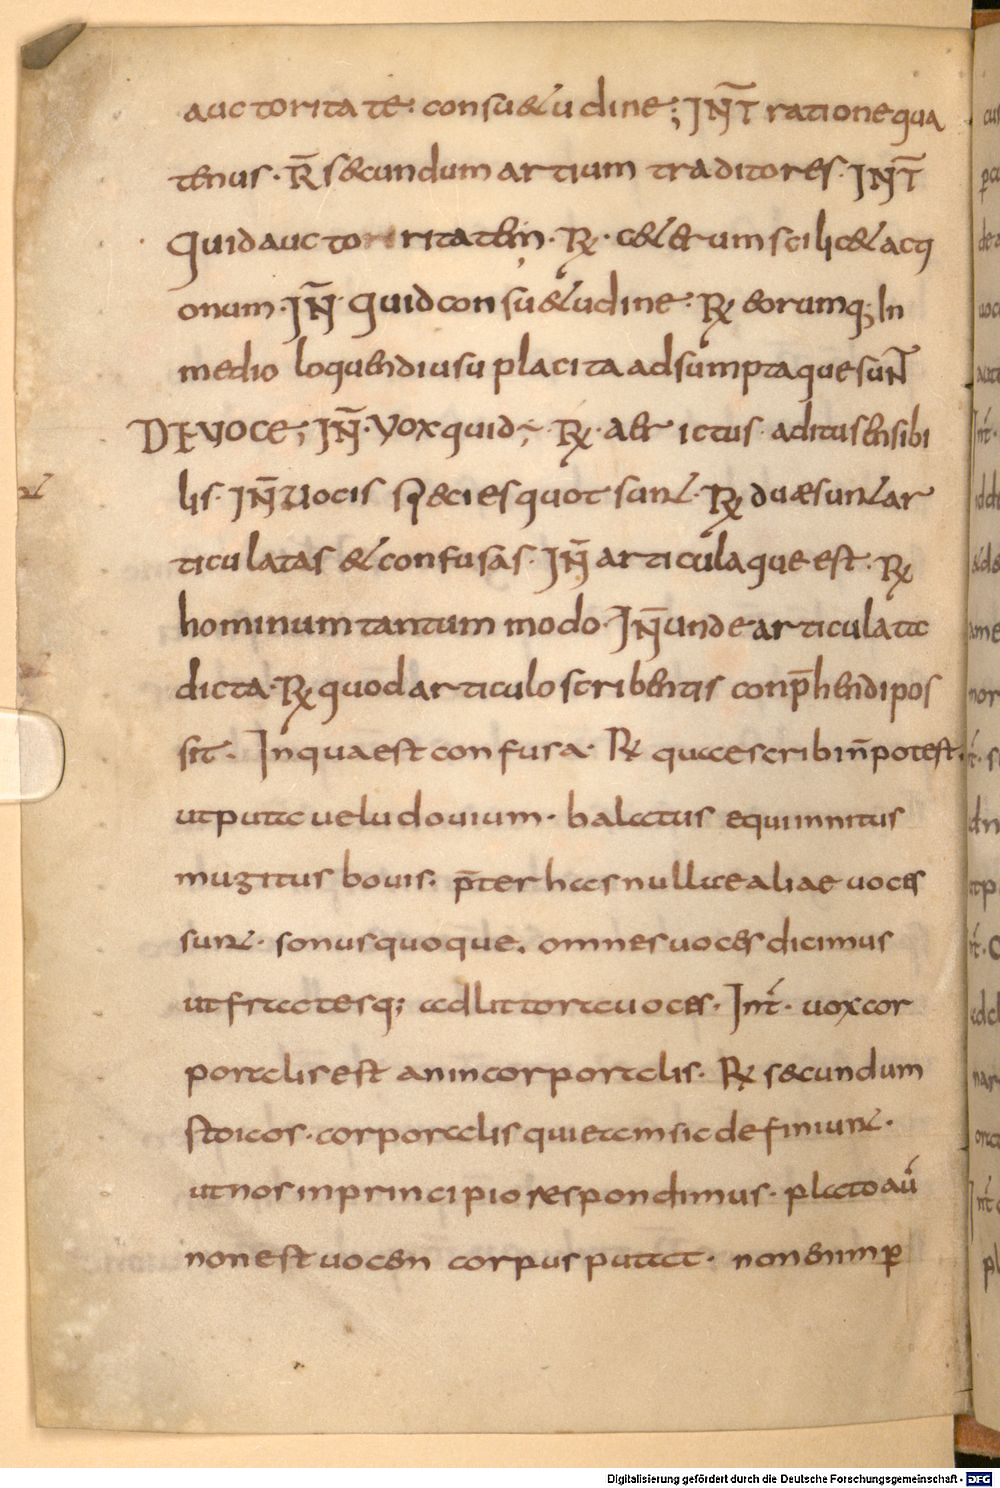 auctoritate. consuetudine; IN̅T ratione qua
tenus. R̅ secundum artium traditores. IN̅T
Quid auctoritatem. R̷. ceterum scilicet acti
onum. IN̅. Quid consuetudine. R̷ eorumq; In
medio loquendi usu placita adsumptaque sun̅t
DE VOCE; IN̅. Vox quid; R̷. Aer ictus aditu sensibi
lis. IN̅ Uocis species quot sunt. R̷ duæ sunt ar
ticulatas & confusas. IN̅ articula que est. R̷
hominum tantum modo. IN̅ unde articulata
dicta. R̷ quod articulo scribentis conp̅hendi pos
sit. Inqua est confusa. R̷ quae scribi n̅ potest.
utputa uelud ouium. balatus equi innitus
mugitus bouis. p̅ter has nullae aliae uoces
sunt. sonus quoque. omnes uoces dicimus
ut fractesq; ad littora uoces. In̅t. uox cor
poralis est an incorporalis. R̷ secundum
stoicos. corporalis qui etam sic definiunt.
ut nos in principio respondimus. plato au̅
non est uocem corpus putat. non enim p
Digitalisierung gefördert durch die Deutsche Forschungsgemeinschaft - DFG